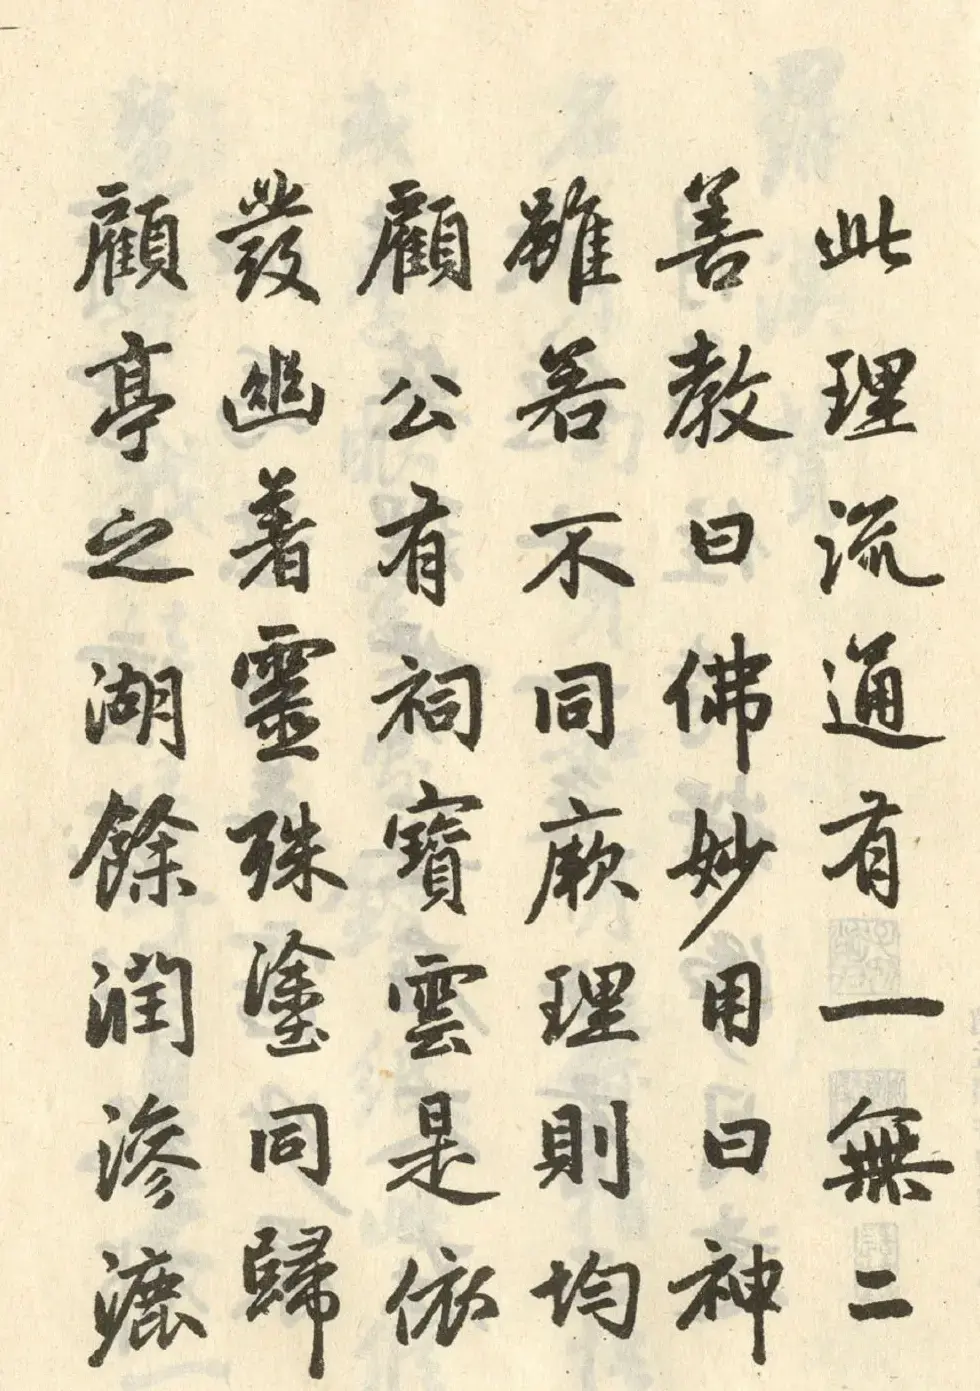 此理流通有一無二
善教曰佛妙用曰神
雖若不同厥理則均
顧公有祠寶雲是依
發幽著靈殊塗同歸
顧亭之湖餘潤滲漉